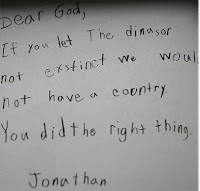 Dear God,
If you let The dinasor
not exstinct we woul
not have a country.
You did the right thing.
Jonathan